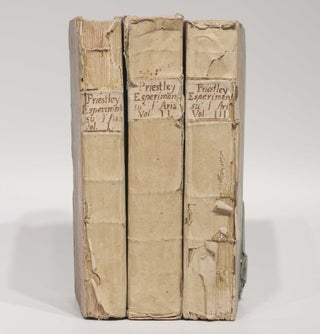 Priestley
Experiment
su l'
Vol. I.
Priestley
Experiment
su l' Aria
Vol II.
Priestley
Experiment
su l' Aria
Vol III.